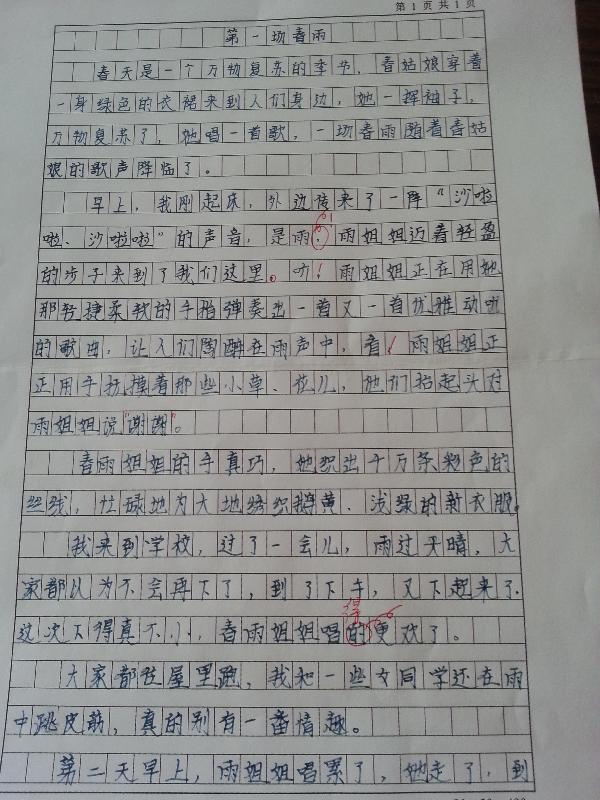 第1页 共1页
第一场春雨
春天是一个万物复苏的季节，春姑娘穿着
一身绿色的衣裙来到人们身边，她一挥袖子，
万物复苏了，她唱一首歌，一场春雨随着春姑
娘的歌声降临了。
早上，我刚起床，外边传来了一阵“沙啦
啦、沙啦啦”的声音，是雨！雨姐姐迈着轻盈
的步子来到了我们这里。听！雨姐姐正在用她
那轻捷柔软的手指弹奏出一首又一首优雅动听
的歌曲，让人们陶醉在雨声中，看！雨姐姐正
正用手抚摸着那些小草、花儿，她们抬起头对
雨姐姐说“谢谢”。
春雨姐姐的手真巧，她织出千万条彩色的
丝线，忙碌地为大地绣织鹅黄、浅绿的新衣服。
我来到学校，过了一会儿，雨过天晴，大
家都以为不会再下了，到了下午，又下起来了.
得
这次下得真不小，春雨姐姐唱的更欢了。
大家都往屋里跑，我和一些女同学还在雨
中跳皮筋，真的别有一番情趣。
第二天早上，雨姐姐唱累了，她走了，到